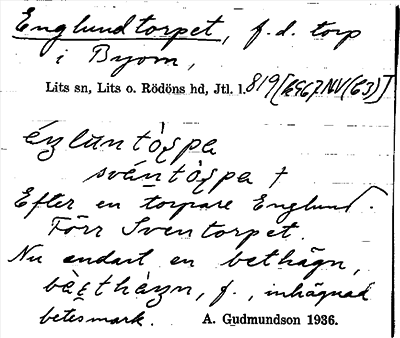 Englundtorpet, f.d. torp
i Byom,
Lits sn, Lits o. Rödöns hd, Jtl. l. 819
svántòrpa †
Efter en torpare Englund.
Förr Sventorpet.
Nu endast en bethägn,
f., inhägnad
betesmark. A. Gudmundson 1936.